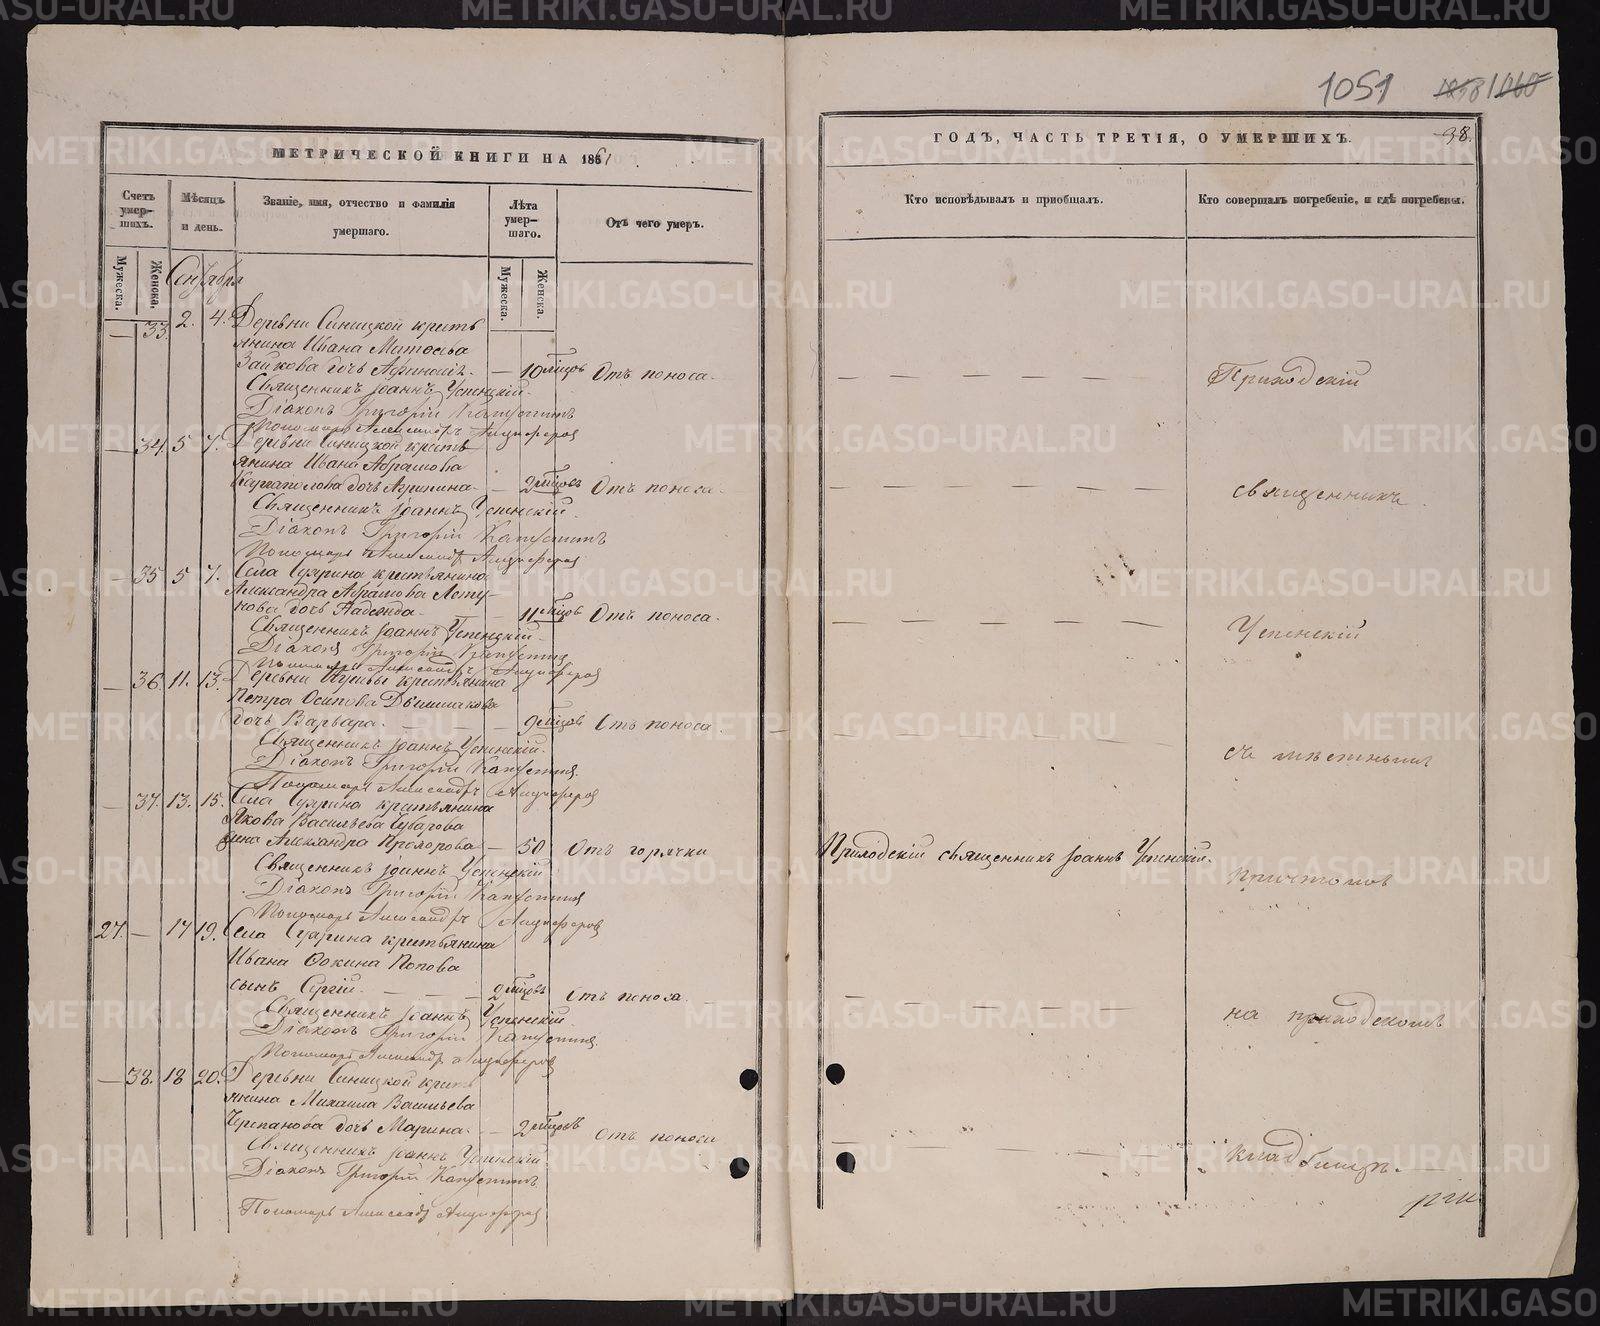 1051
МЕТРИЧЕСКОЙ КНИГИ НА 1861
Счетъ умер-шихъ.
Мѣсяцъ и день.
Званіе, имя, отчество и фамилія умершаго.
Лѣта умер-шаго.
Отъ чего умеръ.
Мужеска.
Женска.
Мужеска.
Женска.
Сентября
— 33. 2. 4. Деревни Синицкой кресть
янина Ивана
Зайкова дочь — 10 мѣсцовъ Отъ поноса.
Священникъ Іоаннъ Успенскій.
Діаконъ Григорій Капустинъ
Пономарь Александръ Анцыферов
— 34. 5 7. Деревни Синицкой кресть
янина Ивана Абрамова
дочь — 2 мѣсцовъ Отъ поноса.
Священникъ Іоаннъ Успенскій.
Діаконъ Григорій Капустинъ
Пономарь Александръ Анцыферов
— 35 5 7. Села крестьянина
Александра Абрамова
дочь Надежда — 11 мѣсцов Отъ поноса.
Священникъ Іоаннъ Успенскій.
Діаконъ Григорій Капустинъ
Пономарь Александръ Анцыферов
— 36. 11. 13. Деревни крестьянина
Петра Осипова
дочь Варвара. — 9 мѣсцов Отъ поноса.
Священникъ Іоаннъ Успенскій.
Діаконъ Григорій Капустинъ.
Пономарь Александръ Анцыферов
— 37. 13. 15. Села крестьянина
Якова Васильева
жена Александра Прохорова — 50 Отъ горячки
Священникъ Іоаннъ Успенскій
Діаконъ Григорій Капустинъ
Пономарь Александръ Анцыферов
27. — 17 19. Села крестьянина
Ивана Попова
сынъ Сергій. — 2 мѣсцовъ Отъ поноса.
Священникъ Іоаннъ Успенскій.
Діаконъ Григорій Капустинъ.
Пономарь Александръ Анцыферов
— 38. 18 20. Деревни Синицкой кресть
янина Михаила Васильева
Черепанова дочь Марина. — 2 мѣсцовъ Отъ поноса
Священникъ Іоаннъ Успенскій
Діаконъ Григорій Капустинъ
Пономарь Александръ Анцыферов
ГОДЪ, ЧАСТЬ ТРЕТІЯ, О УМЕРШИХЪ.
38.
Кто исповѣдывалъ и пріобщалъ.
Кто совершалъ погребеніе, и гдѣ погребены.
Приходскій
священникъ
Успенскій
съ мѣстнымъ
Приходскій священникъ Іоаннъ Успенскій.
причтомъ
на приходскомъ
кладбищѣ.
METRIKI.GASO-URAL.RU